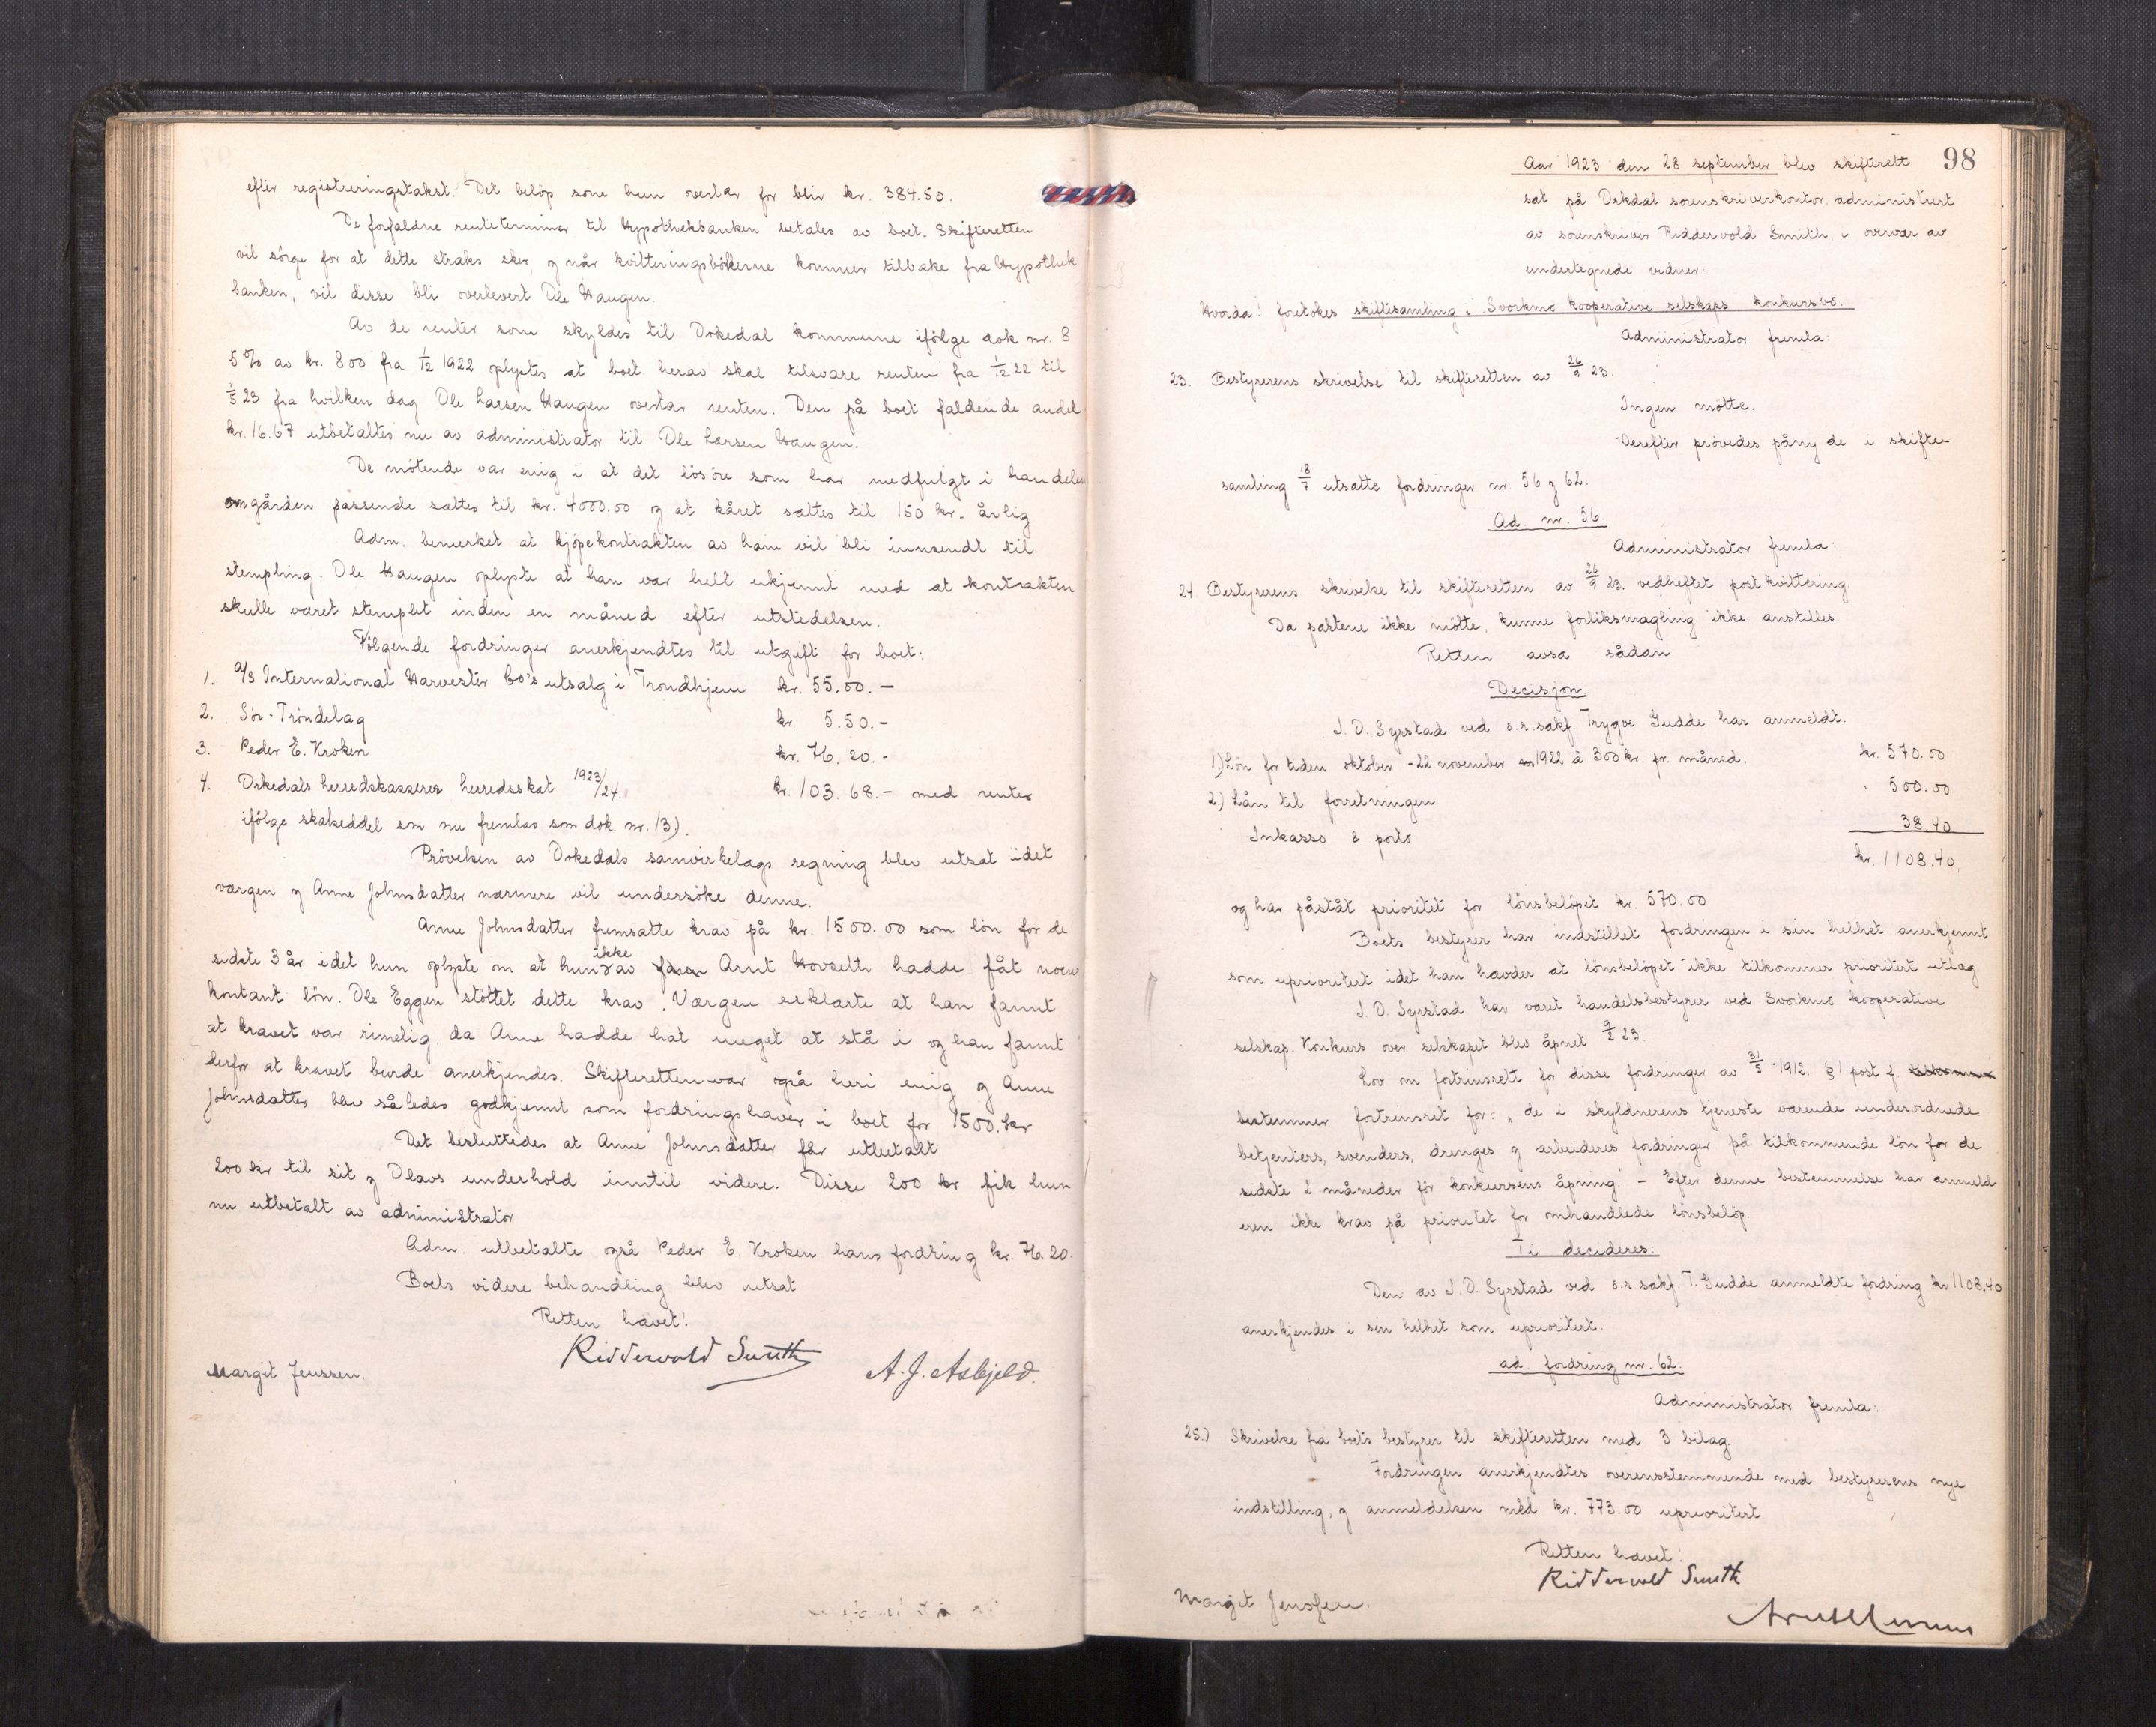 efter registreringstakst. Det beløp som hun overtar for blir kr. 384.50.
De forfaldne renteterminer til Hypothekbanken betales av boet. Skifteretten
vil sörge for at dette straks sker, og når kvitteringsbökerne kommer tilbake fra Hypothek
banken, vil disse bli overlevert Ole Haugen.
Av de renter som skyldes til Orkedal kommune ifölge dok nr. 8
5 % av kr. 800 fra 1/12 1922 oplystes at boet herav skal tilsvare renten fra 1/12 22 til
1/5 23 fra hvilken dag Ole Larsen Haugen overtar renten. Den på boet faldende andel
kr. 16.67 utbetaltes nu av administrator til Ole Larsen Haugen.
De mötende var enig i at det lösöre som har medfulgt i handelen
om gården passende sættes til kr. 4000.00 og at kåret sættes til 150 kr. årlig
Adm. bemerket at kjöpekontrakten av ham vil bli innsendt til
stempling. Ole Haugen oplyste at han var helt ukjennt med at kontrakten
skulle været stemplet inden en måned efter utstedelsen.
Fölgende fordringer anerkjendtes til utgift for boet:
1. A/S International Harvester Co's utsalg i Trondhjem kr. 55.00.-
2. Sör-Tröndelag kr. 5.50.-
3. Peder E. Kroken kr. 76.20.-
4. Orkedals herredskasserer herredsskat 1923/24. kr. 103.68.- med renter
ifölge skatseddel som nu fremlas som dok. nr. 13).
Prövelsen av Orkedals samvirkelags regning blev utsat idet
værgen og Anne Johnsdatter nærmere vil undersöke denne.
Anne Johnsdatter fremsatte krav på kr. 1500.00 som lön for de
sidste 3 år idet hun oplyste om at hun ikke av Arnt Hovseth hadde fåt noen
kontant lön. Ole Eggen stöttet dette krav. Værgen erklærte at han fannt
at kravet var rimelig, da Anne hadde hat meget at stå i og han fannt
derfor at kravet burde anerkjendes. Skifteretten var også heri enig og Anne
Johnsdatter blev således godkjennt som fordringshaver i boet for 1500.kr
Det besluttedes at Anne Johnsdatter får utbetalt
200 kr til sit og Olavs underhold inntil videre. Disse 200 kr fik hun
nu utbetalt av administrator
Adm. utbetalte også Peder E. Kroken hans fordring kr. 76.20.
Boets videre behandling blev utsat
Retten hævet!
Ridderwold Smith
Margit Jenssen. A. J. Asbjeld.
98
Aar 1923 den 28 september blev skifterett
sat på Orkdal sorenskriverkontor, administrert
av sorenskriver Riddervold Smith, i overvær av
undertegnede vidner:
Hvorda! foretokes skiftesamling i Svorkmo kooperative selskaps konkursbo.
Administrator fremla:
23. Bestyrerens skrivelse til skifteretten av 26/9 23.
Ingen mötte.
Derefter prövedes påny de i skifte
samling 18/7 utsatte fordringer nr. 56 og 62.
Ad. nr. 56
Administrator fremla:
24 Bestyrerens skrivelse til skifteretten av 26/9 23. vedheftet postkvittering.
Da partene ikke mötte, kunne forliksmægling ikke anstilles.
Retten avsa sådan
Decisjon
J. O. Syrstad ved o.r.sakf. Trygve Gudde har anmeldt.
1) Lön for tiden oktober - 22 november 1922 à 300 kr. pr. måned. kr. 570.00
2.) Lån til forretningen " 500.00
Inkasso & porto 38.40
kr. 1108.40.
og har påståt prioritet for lönsbelöpet kr. 570.00
Boets bestyrer har indstillet fordringen i sin helhet anerkjennt
som uprioritert idet han hævder at lönsbelöpet ikke tilkommer prioritert utlag.
J. O. Syrstad har været handelsbestyrer ved Svorkmo kooperative
selskap. Konkurs over selskapet blev åpnet 9/2 23.
Lov om fortrinsrett for disse fordringer av 31/5 1912. § 1 post f.
bestemmer fortrinsret for: "de i skyldnerens tjeneste værende underordnede
betjenters, svenders, drenges og arbeideres fordringer på tilkommende lön for de
sidste 2 måneder för konkursens åpning." - Efter denne bestemmelse har anmeld
eren ikke krav på prioritet for omhandlede lönsbelöp.
Ti decideres:
Den av J. O. Syrstad ved o.r.sakf. T. Gudde anmeldte fordring kr 1108.40
anerkjendes i sin helhet som uprioritert.
ad. fordring nr. 62.
Administrator fremla:
25.) Skrivelse fra boets bestyrer til skifteretten med 3 bilag.
Fordringen anerkjendtes overensstemmende med bestyrerens nye
indstilling, og anmeldelsen med kr. 773.00 uprioritert.
Retten hævet:
Ridderwold Smith
Margit Jenssen.